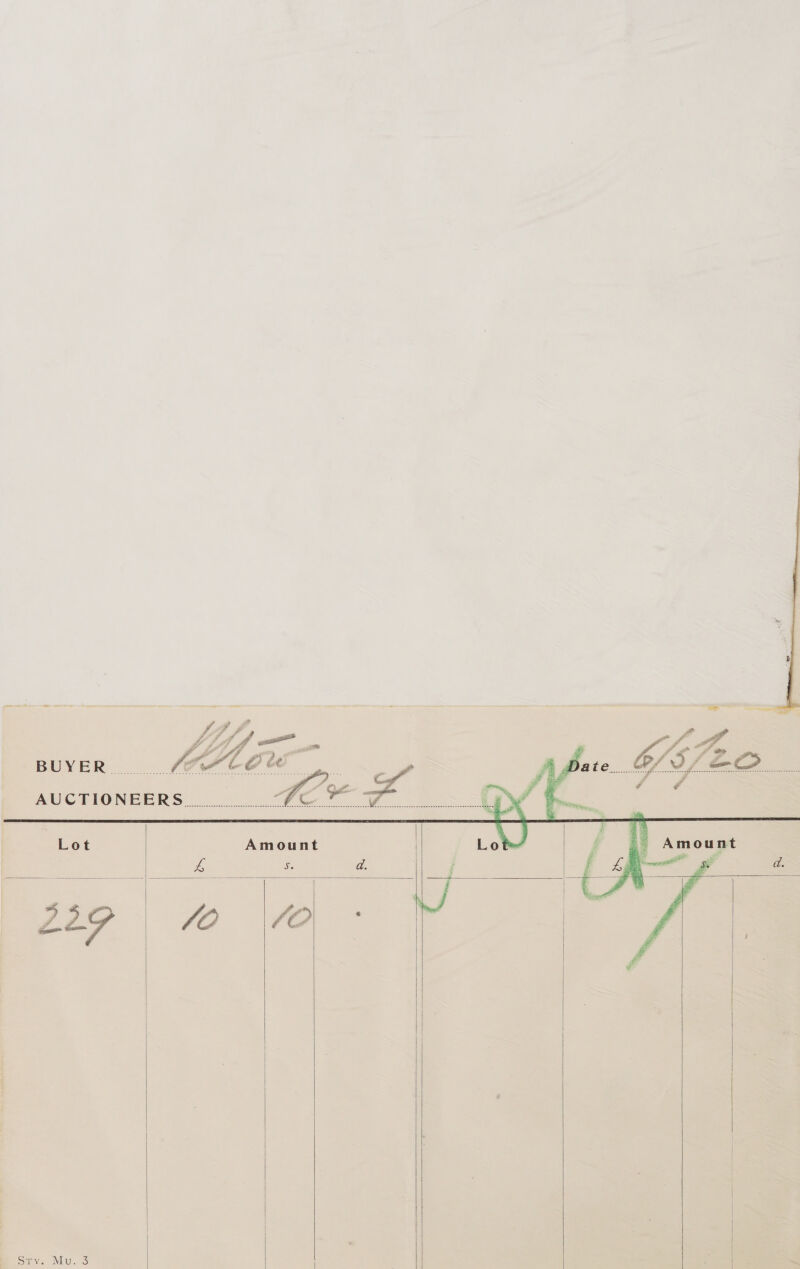 BUYER
Date 6/5/20
AUCTIONEERS K & F
Lot Amount Lot Amount
£ s. d. £ s. d.
229 10 10 .
Sty. Mu. 3